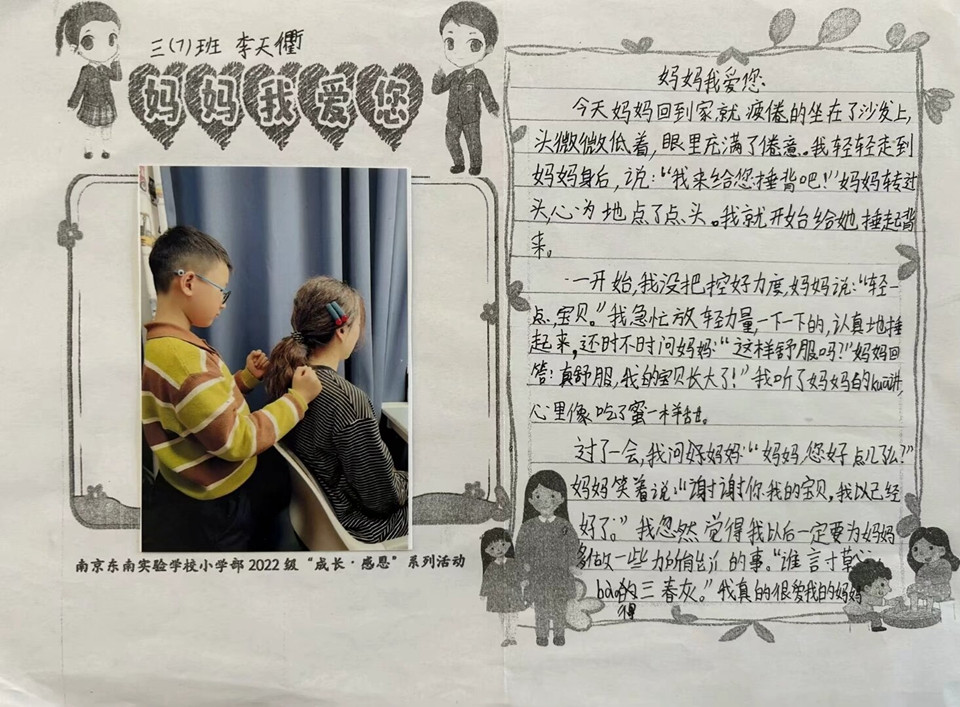 三(7)班 李天衢
妈妈我爱您
南京东南实验学校小学部2022级“成长·感恩”系列活动
妈妈我爱您
今天妈妈回到家,就疲倦的坐在了沙发上,
头微微低着,眼里充满了倦意。我轻轻走到
妈妈身后,说:“我来给您捶背吧!”妈妈转过
头,心为地点了点头。我就开始给她捶起背
来。
一开始,我没把控好力度,妈妈说:“轻一
点,宝贝。”我急忙放轻力量,一下一下的,认真地捶
起来,还时不时问妈妈:“这样舒服吗?”妈妈回
答:真舒服,我的宝贝长大了!”我听了妈妈的kuā讲,
心里像吃了蜜一样甜。
过了一会,我问妈妈:“妈妈,您好点儿了么?”
妈妈笑着说:“谢谢你,我的宝贝。我以已经
好了。”我忽然觉得我以后一定要为妈妈
多做一些力所能及的事。“谁言寸草心,
bào得三春灰。”我真的很爱我的妈妈